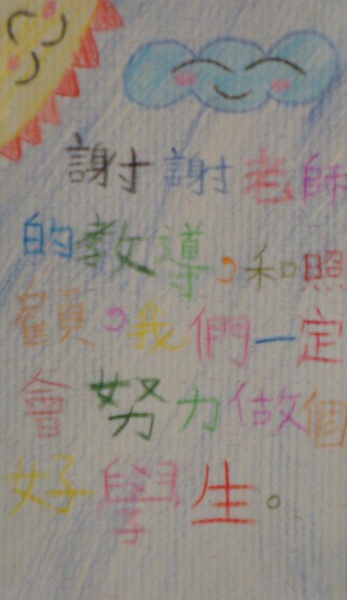 謝謝老師
的教導，和照
顧，我們一定
會努力做個
好學生。